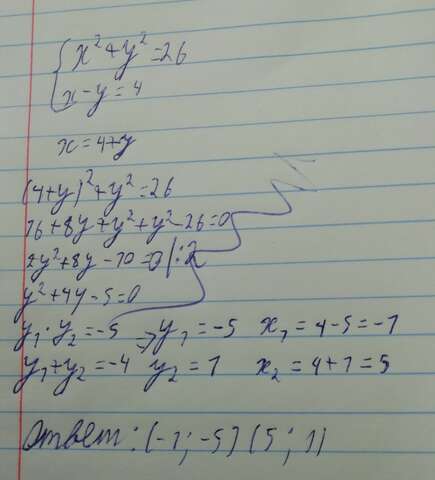 x²+y²=26
x-y=4
x=4+y
(4+y)²+y²=26
16+8y+y²+y²-26=0
2y²+8y-10=0 |:2
y²+4y-5=0
y₁·y₂=-5 ⇒ y₁=-5 x₁=4-5=-1
y₁+y₂=-4 y₂=1 x₂=4+1=5
Ответ: (-1; -5) (5; 1)